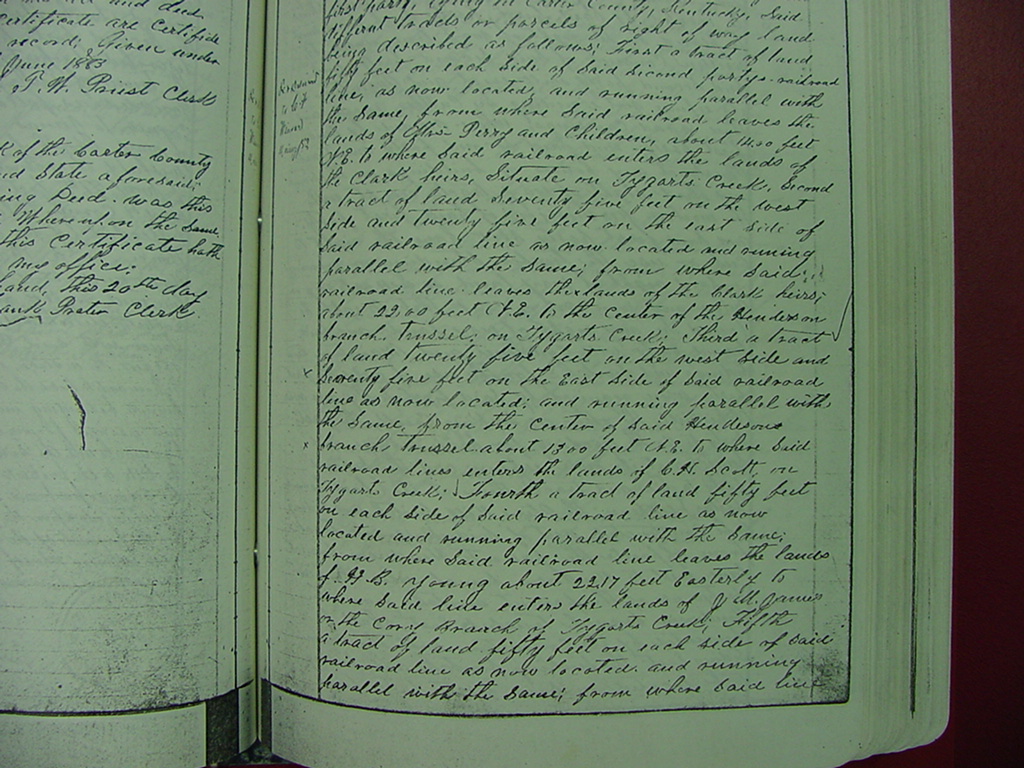 and due
certificate are certificate
record; Given under
June 1883
T. W. Priest Clerk
of the Carter County
State aforesaid;
Deed was this
Whereupon the same
this certificate hath
my office;
hand, this 20th day
Prater Clerk
first party, lying in Carter County, Kentucky, Said
different tracts or parcels of right of way land
being described as follows; First a tract of land
fifty feet on each side of Said Second partys railroad
line, as now located, and running parallel with
the Same, from where Said railroad leaves the
lands of Mrs Perry and Children, about 1400 feet
N.E. to where Said railroad enters the lands of
the Clark heirs, Situate on Tygarts Creek, Second
a tract of land Seventy five feet on the west
Side and twenty five feet on the east side of
Said railroad line as now located and running
parallel with the Same; from where Said
railroad line leaves the lands of the Clark heirs;
about 2200 feet N.E. to the center of the Henderson
branch trussel; on Tygarts Creek; Third a tract
of land twenty five feet on the west side and
x Seventy five feet on the East Side of Said railroad
line as now located; and running parallel with
the Same, from the Center of Said Hendersons
x branch trussel about 1300 feet N.E. to where Said
railroad lines enters the lands of C.H. Scott, on
Tygarts Creek; Fourth a tract of land fifty feet
on each side of Said railroad line as now
located and running parallel with the Same;
from where Said railroad line leaves the lands
of Young about 2217 feet Easterly to
where Said line enters the lands of J M James
on the Corry Branch of Tygarts Creek; Fifth
a tract of land fifty feet on each side of Said
railroad line as now located and running
parallel with the Same; from where Said line